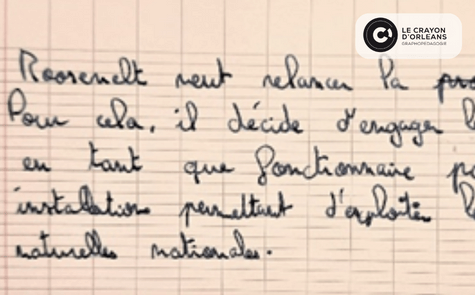 LE CRAYON
D'ORLEANS
GRAPHOPEDAGOGIE
Roosevelt veut relancer la
Pour cela, il décide d'engager
en tant que fonctionnaire
installation permettant d'exploiter
naturelles nationales.